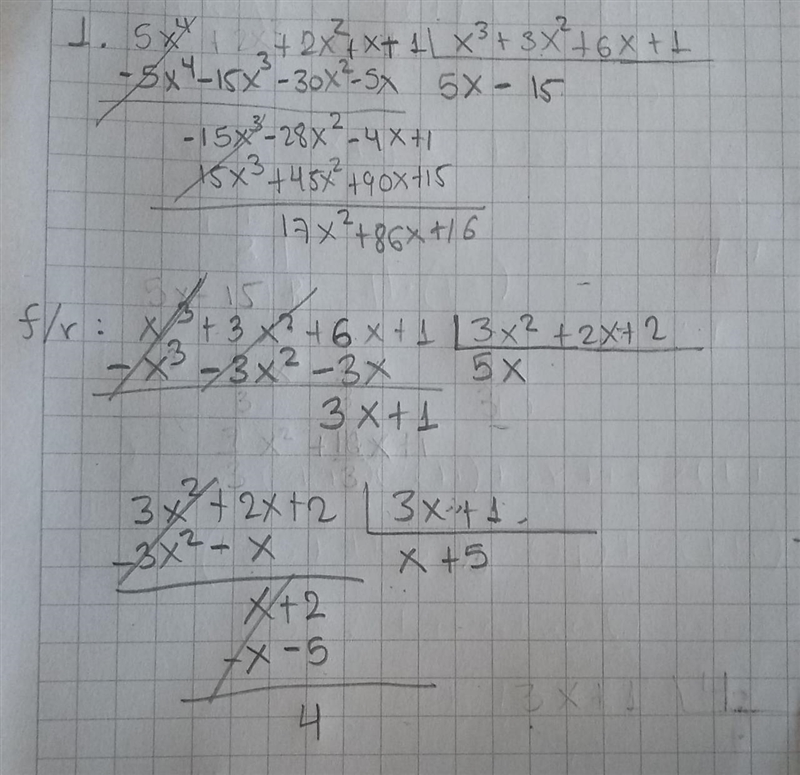 1. 5x⁴ + 2x² + x + 1 | x³ + 3x² + 6x + 1
-5x⁴ - 15x³ - 30x² - 5x 5x - 15
-15x³ - 28x² - 4x + 1
15x³ + 45x² + 90x + 15
17x² + 86x + 16
f/r : x³ + 3x² + 6x + 1 | 3x² + 2x + 2
-x³ - 3x² - 3x 5x
3x + 1
3x² + 2x + 2 | 3x + 1
-3x² - x x + 5
x + 2
-x - 5
4